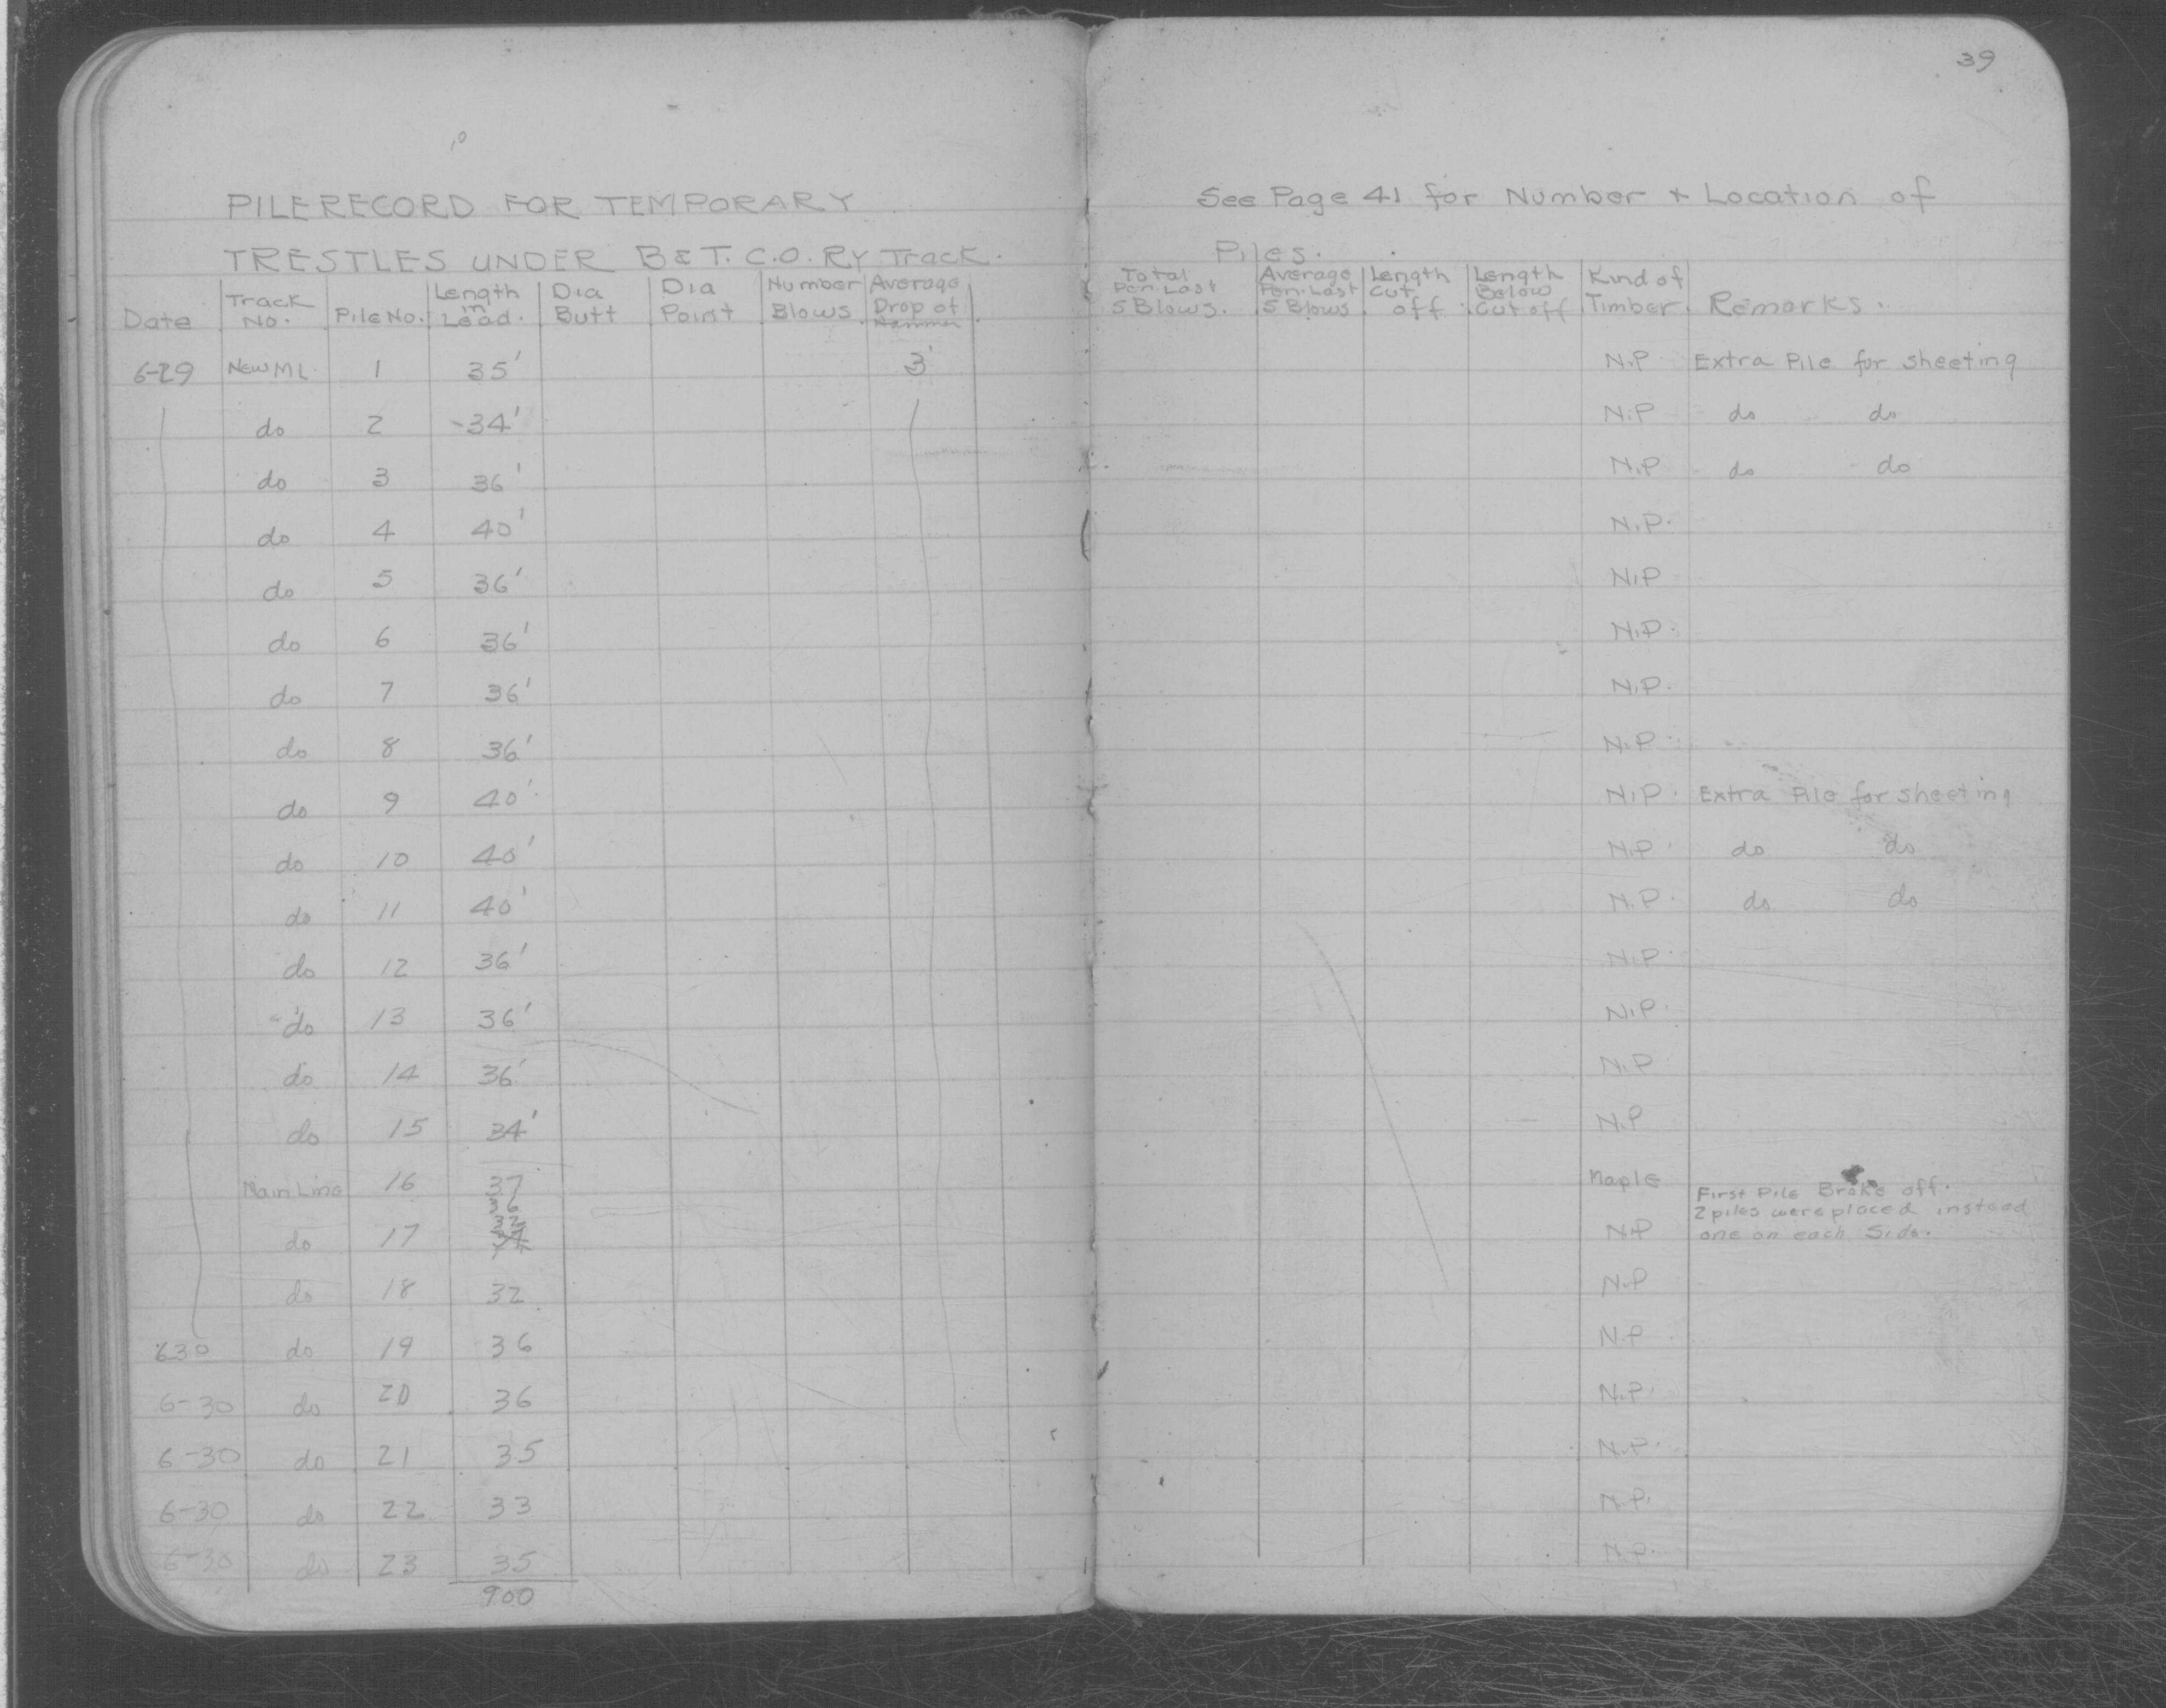 39
PILE RECORD FOR TEMPORARY
TRESTLES UNDER B & T. C.O. RY Track.
Date Track No. Pile No. Length in Lead. Dia Butt Dia Point Number Blows Average Drop of Hammer
6-29 New M L 1 35' 3'
do 2 34'
do 3 36'
do 4 40'
do 5 36'
do 6 36'
do 7 36'
do 8 36'
do 9 40'
do 10 40'
do 11 40'
do 12 36'
do 13 36'
do 14 36'
do 15 34'
Main Line 16 37
36
do 17 32
do 18 32
630 do 19 36
6-30 do 20 36
6-30 do 21 35
6-30 do 22 33
6-30 do 23 35
900
See Page 41 for Number + Location of
Piles.
Total Pen. Last 5 Blows. Average Pen. Last 5 Blows Length Cut off Length Below Cut off Kind of Timber. Remarks.
N.P Extra Pile for sheeting
N.P do do
N.P do do
N.P.
N.P
N.P.
N.P.
N.P.
N.P. Extra Pile for sheeting
N.P. do do
N.P. do do
N.P.
N.P.
N.P
N.P
Maple First Pile Broke off.
2 piles were placed instead
N.P one on each Side.
N.P
N.P
N.P.
N.P.
N.P.
N.P.